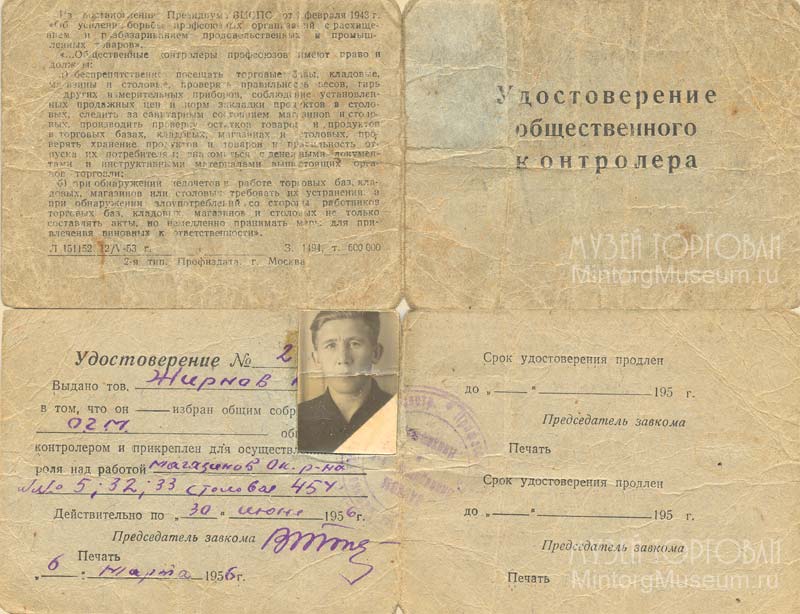 Из постановления Президиума ВЦСПС от февраля 1943 г.
«Об усилении борьбы профсоюзных организаций с расхище-
нием и разбазариванием продовольственных и промыш-
ленных товаров».
«...Общественные контролеры профсоюзов имеют право и
должны:
а) беспрепятственно посещать торговые базы, кладовые,
магазины и столовые, проверять правильность весов, гирь
и других измерительных приборов, соблюдение установлен-
ных продажных цен и норм закладки продуктов в столо-
вых, следить за санитарным состоянием магазинов и столо-
вых, производить проверку остатков товаров и продуктов
в торговых базах, кладовых, магазинах и столовых, про-
верять хранение продуктов и товаров и правильность от-
пуска их потребителям; знакомиться с денежными докумен-
тами и инструктивными материалами вышестоящих орга-
нов торговли;
б) при обнаружении недочетов в работе торговых баз, кла-
довых, магазинов или столовых требовать их устранения и
при обнаружении злоупотреблений со стороны работников
торговых баз, кладовых магазинов и столовых не только
составлять акты, но и немедленно принимать меры для при-
влечения виновных к ответственности».
Л 151152 12/X-53 г. З. 1494, т. 600 000
2-я тип. Профиздата, г. Москва
Удостоверение
общественного
контролера
МУЗЕЙ ТОРГОВЛИ
MintorgMuseum.ru
Удостоверение № 2
Выдано тов. Жирнов
в том, что он — избран общим собр
ОГМ об
контролером и прикреплен для осуществ
роля над работой магазинов Ок. р-на
№№ 5; 32; 33 столовая 454
Действительно по „30" июня 1956 г.
Председатель завкома
Печать
„6" марта 1956 г.
Срок удостоверения продлен
до „—" 195 г.
Председатель завкома
Печать
Срок удостоверения продлен
до „—" 195 г.
Председатель завкома
Печать
МУЗЕЙ ТОРГОВЛИ
MintorgMuseum.ru